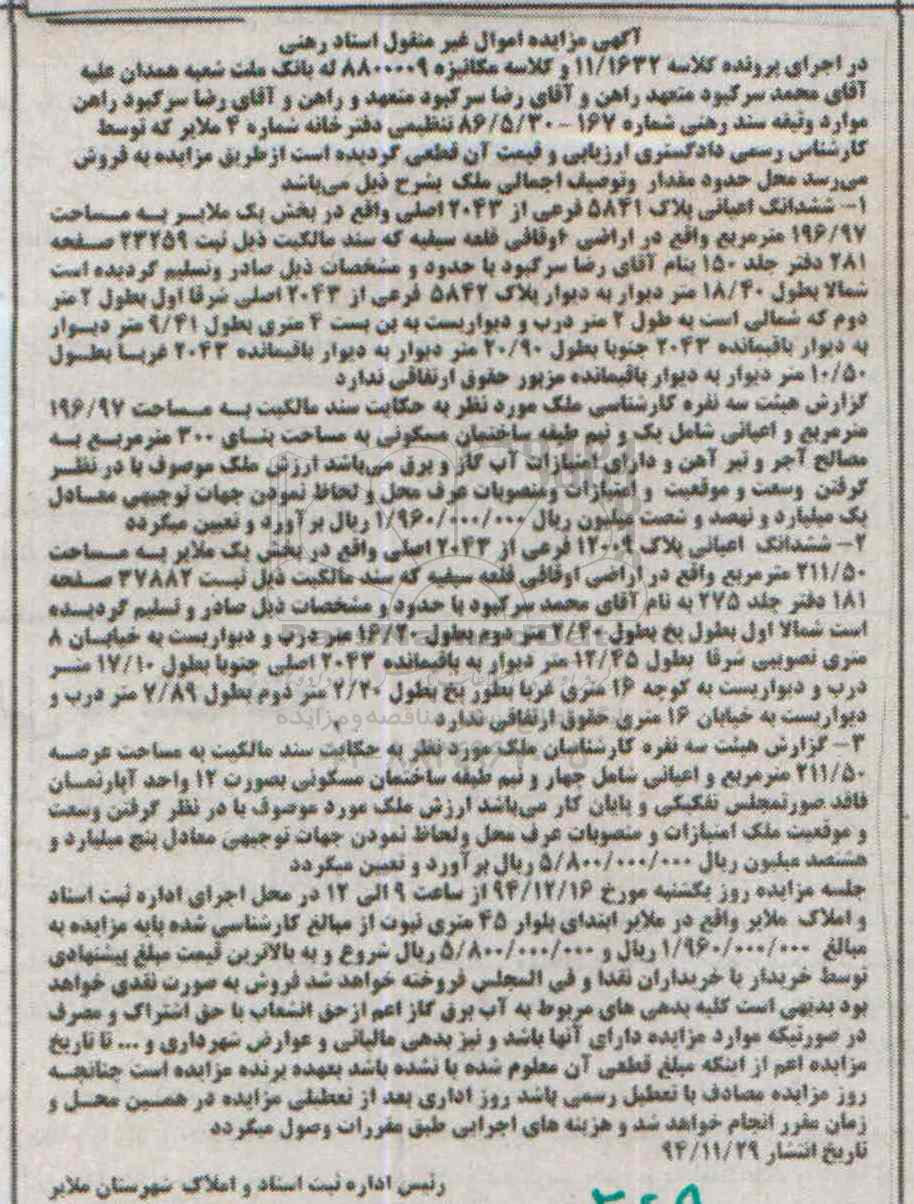 آگهی مزایده اموال غیر منقول اسناد رهنی
در اجرای پرونده کلاسه ۱۱/۱۶۳۲ و کلاسه مکانیزه ۸۸۰۰۰۰۹ له بانک ملت شعبه همدان علیه
آقای محمد سرکبود متعهد راهن و آقای رضا سرکبود متعهد و راهن و آقای رضا سرکبود راهن
موارد وثیقه سند رهنی شماره ۱۶۷ - ۸۶/۵/۳۰ تنظیمی دفترخانه شماره ۴ ملایر که توسط
کارشناس رسمی دادگستری ارزیابی و قیمت آن قطعی گردیده است از طریق مزایده به فروش
می‌رسد محل حدود مقدار وتوصیف اجمالی ملک بشرح ذیل می‌باشد
۱- ششدانگ اعیانی پلاک ۵۸۴۱ فرعی از ۲۰۴۳ اصلی واقع در بخش یک ملایر به مساحت
۱۹۶/۹۷ مترمربع واقع در اراضی اوقافی قلعه سیفیه که سند مالکیت ذیل ثبت ۲۳۲۵۹ صفحه
۲۸۱ دفتر جلد ۱۵۰ بنام آقای رضا سرکبود با حدود و مشخصات ذیل صادر وتسلیم گردیده است
شمالا بطول ۱۸/۴۰ متر دیوار به دیوار پلاک ۵۸۴۲ فرعی از ۲۰۴۳ اصلی شرقا اول بطول ۲ متر
دوم که شمالی است به طول ۲ متر درب و دیواریست به بن بست ۴ متری بطول ۹/۴۱ متر دیوار
به دیوار باقیمانده ۲۰۴۳ جنوبا بطول ۲۰/۹۰ متر دیوار به دیوار باقیمانده ۲۰۴۳ غربا بطول
۱۰/۵۰ متر دیوار به دیوار باقیمانده مزبور حقوق ارتفاقی ندارد
گزارش هیئت سه نفره کارشناسی ملک مورد نظر به حکایت سند مالکیت به مساحت ۱۹۶/۹۷
مترمربع و اعیانی شامل یک و نیم طبقه ساختمان مسکونی به مساحت بنای ۳۰۰ مترمربع به
مصالح آجر و تیر آهن و دارای امتیازات آب گاز و برق می‌باشد ارزش ملک موصوف با در نظر
گرفتن وسعت و موقعیت و امتیازات ومنصوبات عرف محل و لحاظ نمودن جهات توجیهی معادل
یک میلیارد و نهصد و شصت میلیون ریال ۱/۹۶۰/۰۰۰/۰۰۰ ریال برآورد و تعیین میگردد
۲- ششدانگ اعیانی پلاک ۱۲۰۰۹ فرعی از ۲۰۴۳ اصلی واقع در بخش یک ملایر به مساحت
۲۱۱/۵۰ مترمربع واقع در اراضی اوقافی قلعه سیفیه که سند مالکیت ذیل ثبت ۳۷۸۸۲ صفحه
۱۸۱ دفتر جلد ۲۷۵ به نام آقای محمد سرکبود با حدود و مشخصات ذیل صادر و تسلیم گردیده
است شمالا اول بطول یخ بطول ۲/۴۰ متر دوم بطول ۱۶/۲۰ متر درب و دیواریست به خیابان ۸
متری تصویبی شرقا بطول ۱۲/۴۵ متر دیوار به باقیمانده ۲۰۴۳ اصلی جنوبا بطول ۱۷/۱۰ متر
درب و دیواریست به کوچه ۱۶ متری غربا بطور یخ بطول ۲/۲۰ متر دوم بطول ۷/۸۹ متر درب و
دیواریست به خیابان ۱۶ متری حقوق ارتفاقی ندارد
۳- گزارش هیئت سه نفره کارشناسان ملک مورد نظر به حکایت سند مالکیت به مساحت عرصه
۲۱۱/۵۰ مترمربع و اعیانی شامل چهار و نیم طبقه ساختمان مسکونی بصورت ۱۲ واحد آپارتمان
فاقد صورتمجلس تفکیکی و پایان کار می‌باشد ارزش ملک مورد موصوف با در نظر گرفتن وسعت
و موقعیت ملک امتیازات و منصوبات عرف محل ولحاظ نمودن جهات توجیهی معادل پنج میلیارد و
هشتصد میلیون ریال ۵/۸۰۰/۰۰۰/۰۰۰ ریال برآورد و تعیین میگردد
جلسه مزایده روز یکشنبه مورخ ۹۴/۱۲/۱۶ از ساعت ۹ الی ۱۲ در محل اجرای اداره ثبت اسناد
و املاک ملایر واقع در ملایر ابتدای بلوار ۴۵ متری نبوت از مبالغ کارشناسی شده پایه مزایده به
مبالغ ۱/۹۶۰/۰۰۰/۰۰۰ ریال و ۵/۸۰۰/۰۰۰/۰۰۰ ریال شروع و به بالاترین قیمت مبلغ پیشنهادی
توسط خریدار یا خریداران نقدا و فی المجلس فروخته خواهد شد فروش به صورت نقدی خواهد
بود بدیهی است کلیه بدهی های مربوط به آب برق گاز اعم از حق انشعاب یا حق اشتراک و مصرف
در صورتیکه موارد مزایده دارای آنها باشد و نیز بدهی مالیاتی و عوارض شهرداری و ... تا تاریخ
مزایده اعم از اینکه مبلغ قطعی آن معلوم شده یا نشده باشد بعهده برنده مزایده است چنانچه
روز مزایده مصادف با تعطیل رسمی باشد روز اداری بعد از تعطیلی مزایده در همین محل و
زمان مقرر انجام خواهد شد و هزینه های اجرایی طبق مقررات وصول میگردد
تاریخ انتشار ۹۴/۱۱/۲۹
رئیس اداره ثبت اسناد و املاک شهرستان ملایر